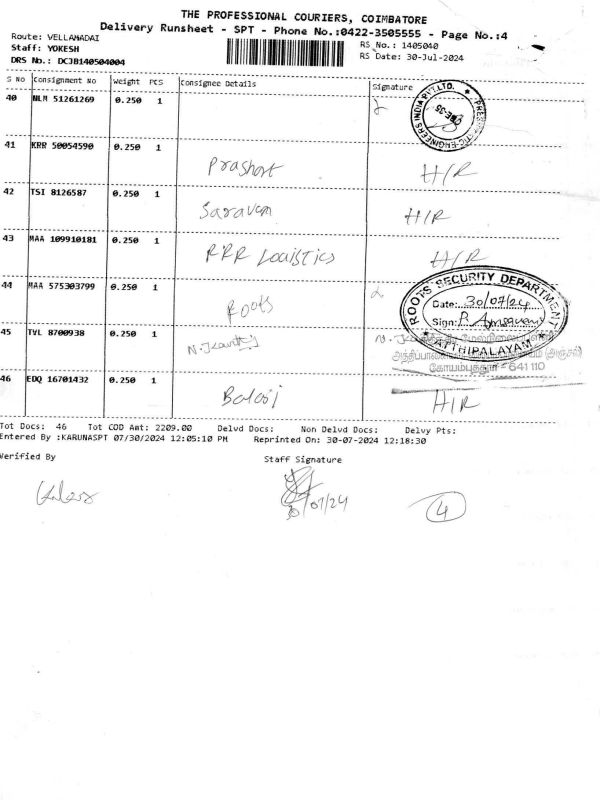 THE PROFESSIONAL COURIERS, COIMBATORE
Delivery Runsheet - SPT - Phone No.:0422-3505555 - Page No.:4
Route: VELLAMADAI
Staff: YOKESH
DRS No.: DCJB140504004
RS No.: 1405040
RS Date: 30-Jul-2024
S No Consignment No Weight PCS Consignee Details Signature
40 NLM 51261269 0.250 1
ENGINEERS INDIA PVT.LTD.
CBE-35
41 KRR 50054590 0.250 1
Prashant H/R
42 TSI 8126587 0.250 1
Saravan H/R
43 MAA 109910181 0.250 1
RRR Logistics H/R
44 MAA 575303799 0.250 1
Roots
ROOTS SECURITY DEPARTMENT
Date: 30/07/24
Sign:
ATTHIPALAYAM
45 TVL 8700938 0.250 1
கோயம்புத்தூர் - 641 110
46 EDQ 16701432 0.250 1
Balaji H/R
Tot Docs: 46 Tot COD Amt: 2209.00 Delvd Docs: Non Delvd Docs: Delvy Pts:
Entered By :KARUNASPT 07/30/2024 12:05:10 PM Reprinted On: 30-07-2024 12:18:30
Verified By Staff Signature
30/07/24
4